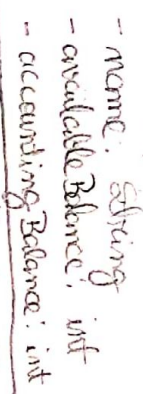 - name: String
- availableBalance: int
- accountingBalance: int